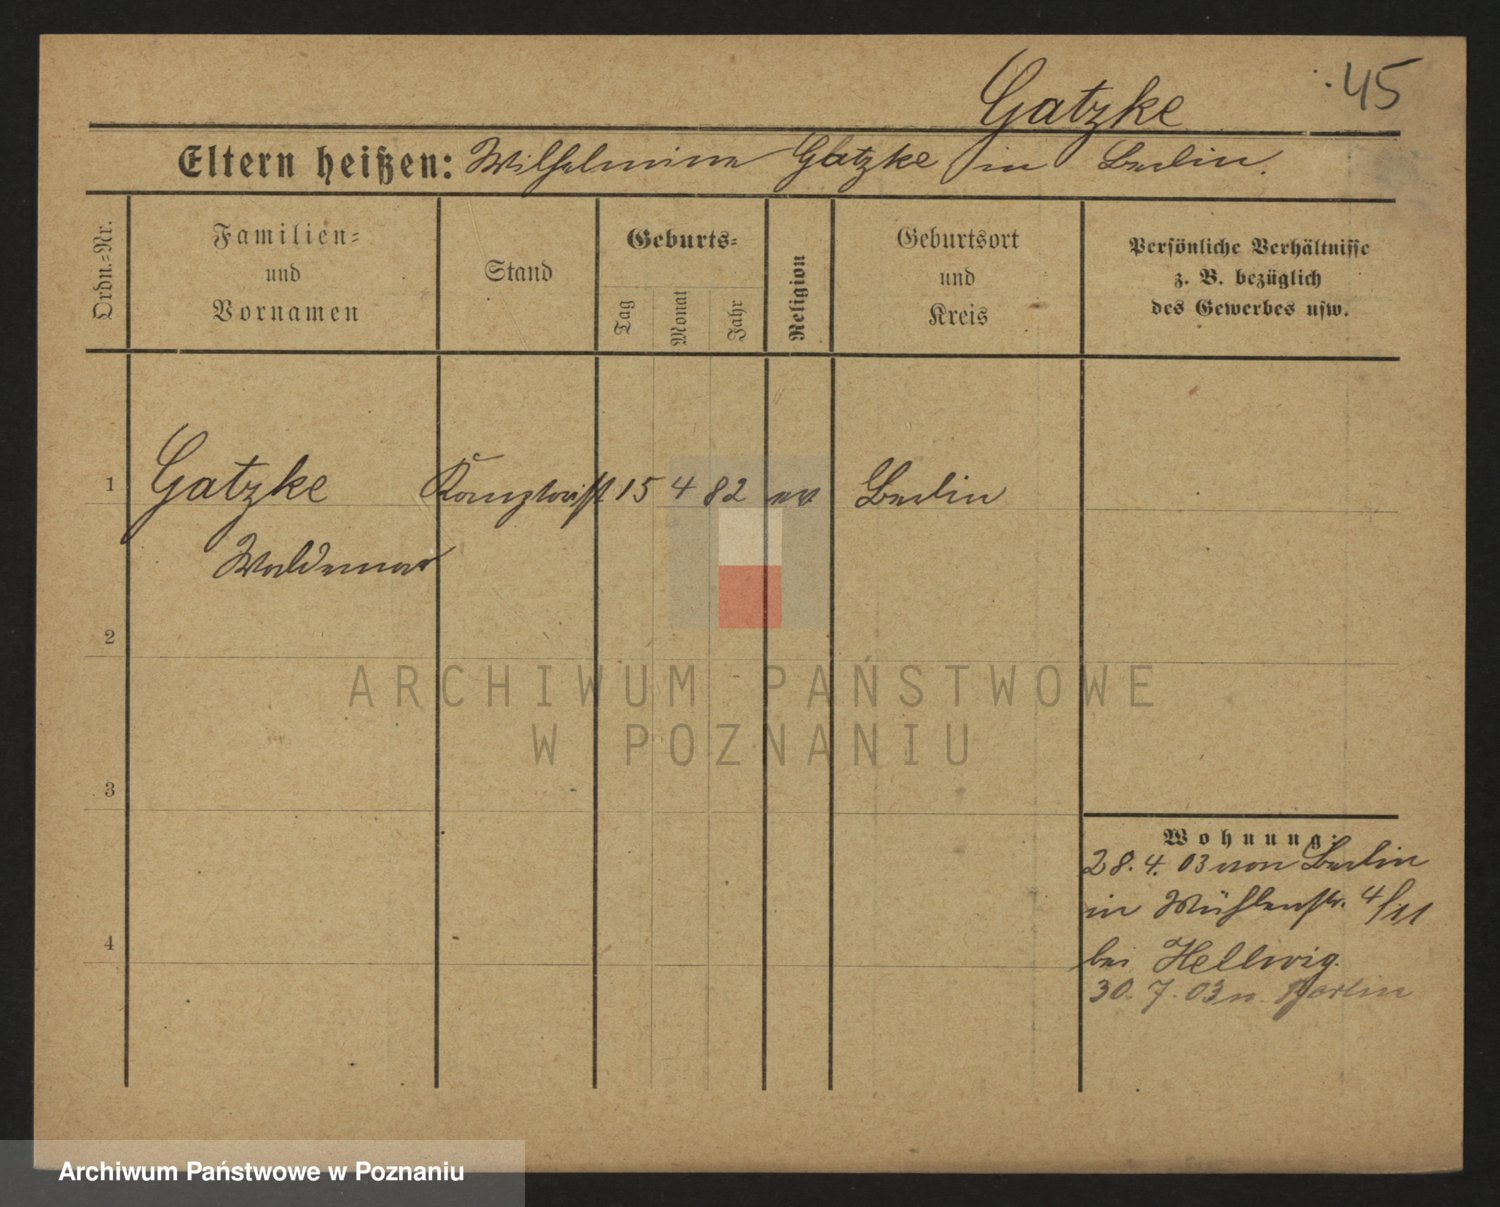 Gatzke
45
Eltern heißen: Wilhelmine Gatzke in Berlin.
Ordn.-Nr.
Familien-
und
Vornamen
Stand
Geburts-
Tag
Monat
Jahr
Religion
Geburtsort
und
Kreis
Persönliche Verhältnisse
z. B. bezüglich
des Gewerbes usw.
1 Gatzke Kanzlist 15 4 82 ev Berlin
Waldemar
2
3
4
Wohnung:
28. 4. 03 von Berlin
in Mühlenstr. 4/11
bei Hellwig.
30. 7. 03 n. Berlin
ARCHIWUM PAŃSTWOWE
W POZNANIU
Archiwum Państwowe w Poznaniu